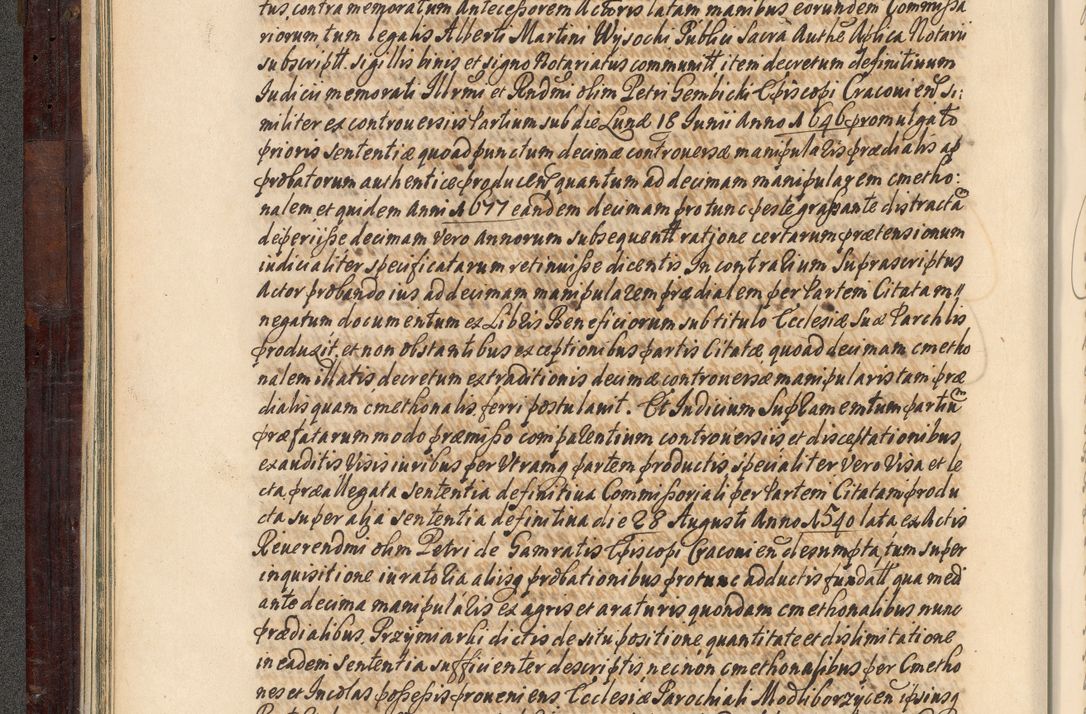 tus, contra memoratum Antecessorem Actoris latam manibus eorundem Commissa
riorum tum legalis Alberti Martini Wysochi Publici Sacra Authe Aplica Notarii
subscriptt. sigillis binis et signo Notariatus communitt item decretum definitiuum
Iudicii memorati Illrmi et Rndmi olim Petri Gembicki Episcopi Cracouien Si:
militer ex controuersiis Partium sub die Lunæ 18 Iunii Anno 1646 promulgato
prioris sententiæ quoad punctum decimæ controuersæ manipularis prædialis ap
probatorum authentice producen quantum ad decimam manipularem cmetho:
nalem et quidem Anni 1677 eandem decimam pro tunc peste grassante distracta
deperiisse decimam vero Annorum subsequentt ratione certarum prætensionum
iudicialiter specificatarum retinuisse dicentis In contrarium Suprascriptus
Actor probando ius ad decimam manipularem prædialem per Partem Citatam //
negatum documentum ex Libris Beneficiorum sub titulo Ecclesiæ Suæ Parchlis
produxit, et non obstantibus exceptionibus partis Citatæ quoad decimam cmetho
nalem illatis decretum extraditionis decimæ controuersæ manipularis tam præ
dialis quam cmethonalis ferri postulauit. Et Iudicium Suplamemtum partiu
præfatarum modo præmisso comparentium controuersiis et disceptationibus
exauditis Visis iuribus per Vtramq partem productis specialiter vero Visa et le
cta præallegata sententia definitiua Commissoriali per Partem Citatam produ
cta super alia sententia definitiua die 28 Augusti Anno 1540 lata ex Actis
Reuerendmi olim Petri de Gamratis Episcopi Cracouien desumpta, tum super
inquisitione iuratoria aliisq probationibus pro tunc adductis fundatt qua medi
ante decima manipularis ex agris et araturis quondam cmethonalibus nunc
prædialibus Przymiarki dictis de situ positione quantitate et dislimitatione
in eadem sententia sufficienter descriptis nec non cmethonalibus per Cmetho
nes et Incolas possessis proueniens Ecclesiæ Parochiali Modliborzycen ipsiusq